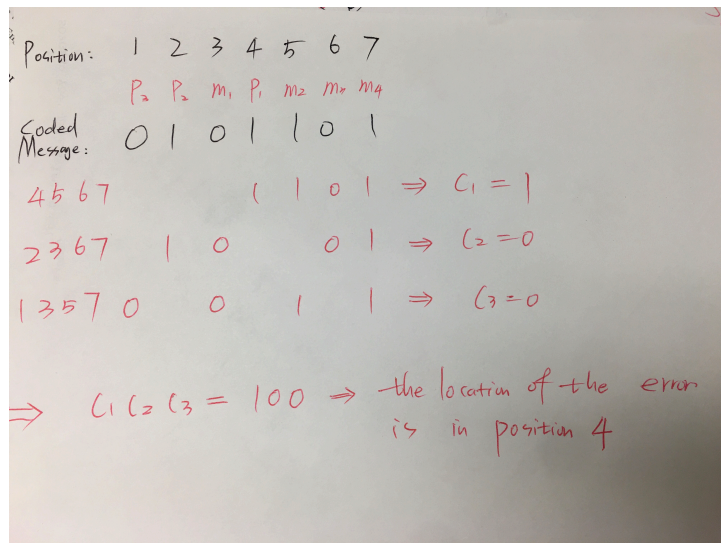 Position: 1 2 3 4 5 6 7
P₃ P₂ m₁ P₁ m₂ m₃ m₄
Coded Message: 0 1 0 1 1 0 1
4567 1 1 0 1 ⇒ C₁ = 1
2367 1 0 0 1 ⇒ C₂ = 0
1357 0 0 1 1 ⇒ C₃ = 0
⇒ C₁ C₂ C₃ = 100 ⇒ the location of the error
is in position 4